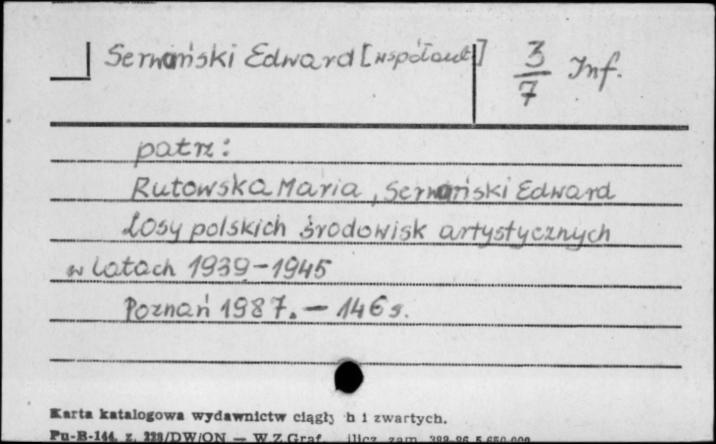 Serwański Edward [współaut.] 3/7 Inf.
patrz:
Rutowska Maria, Serwański Edward
Losy polskich środowisk artystycznych
w latach 1939-1945
Poznań 1987. - 146 s.
Karta katalogowa wydawnictw ciągły h i zwartych.
Pu-B-144, z. 228/DW/ON — WZGraf